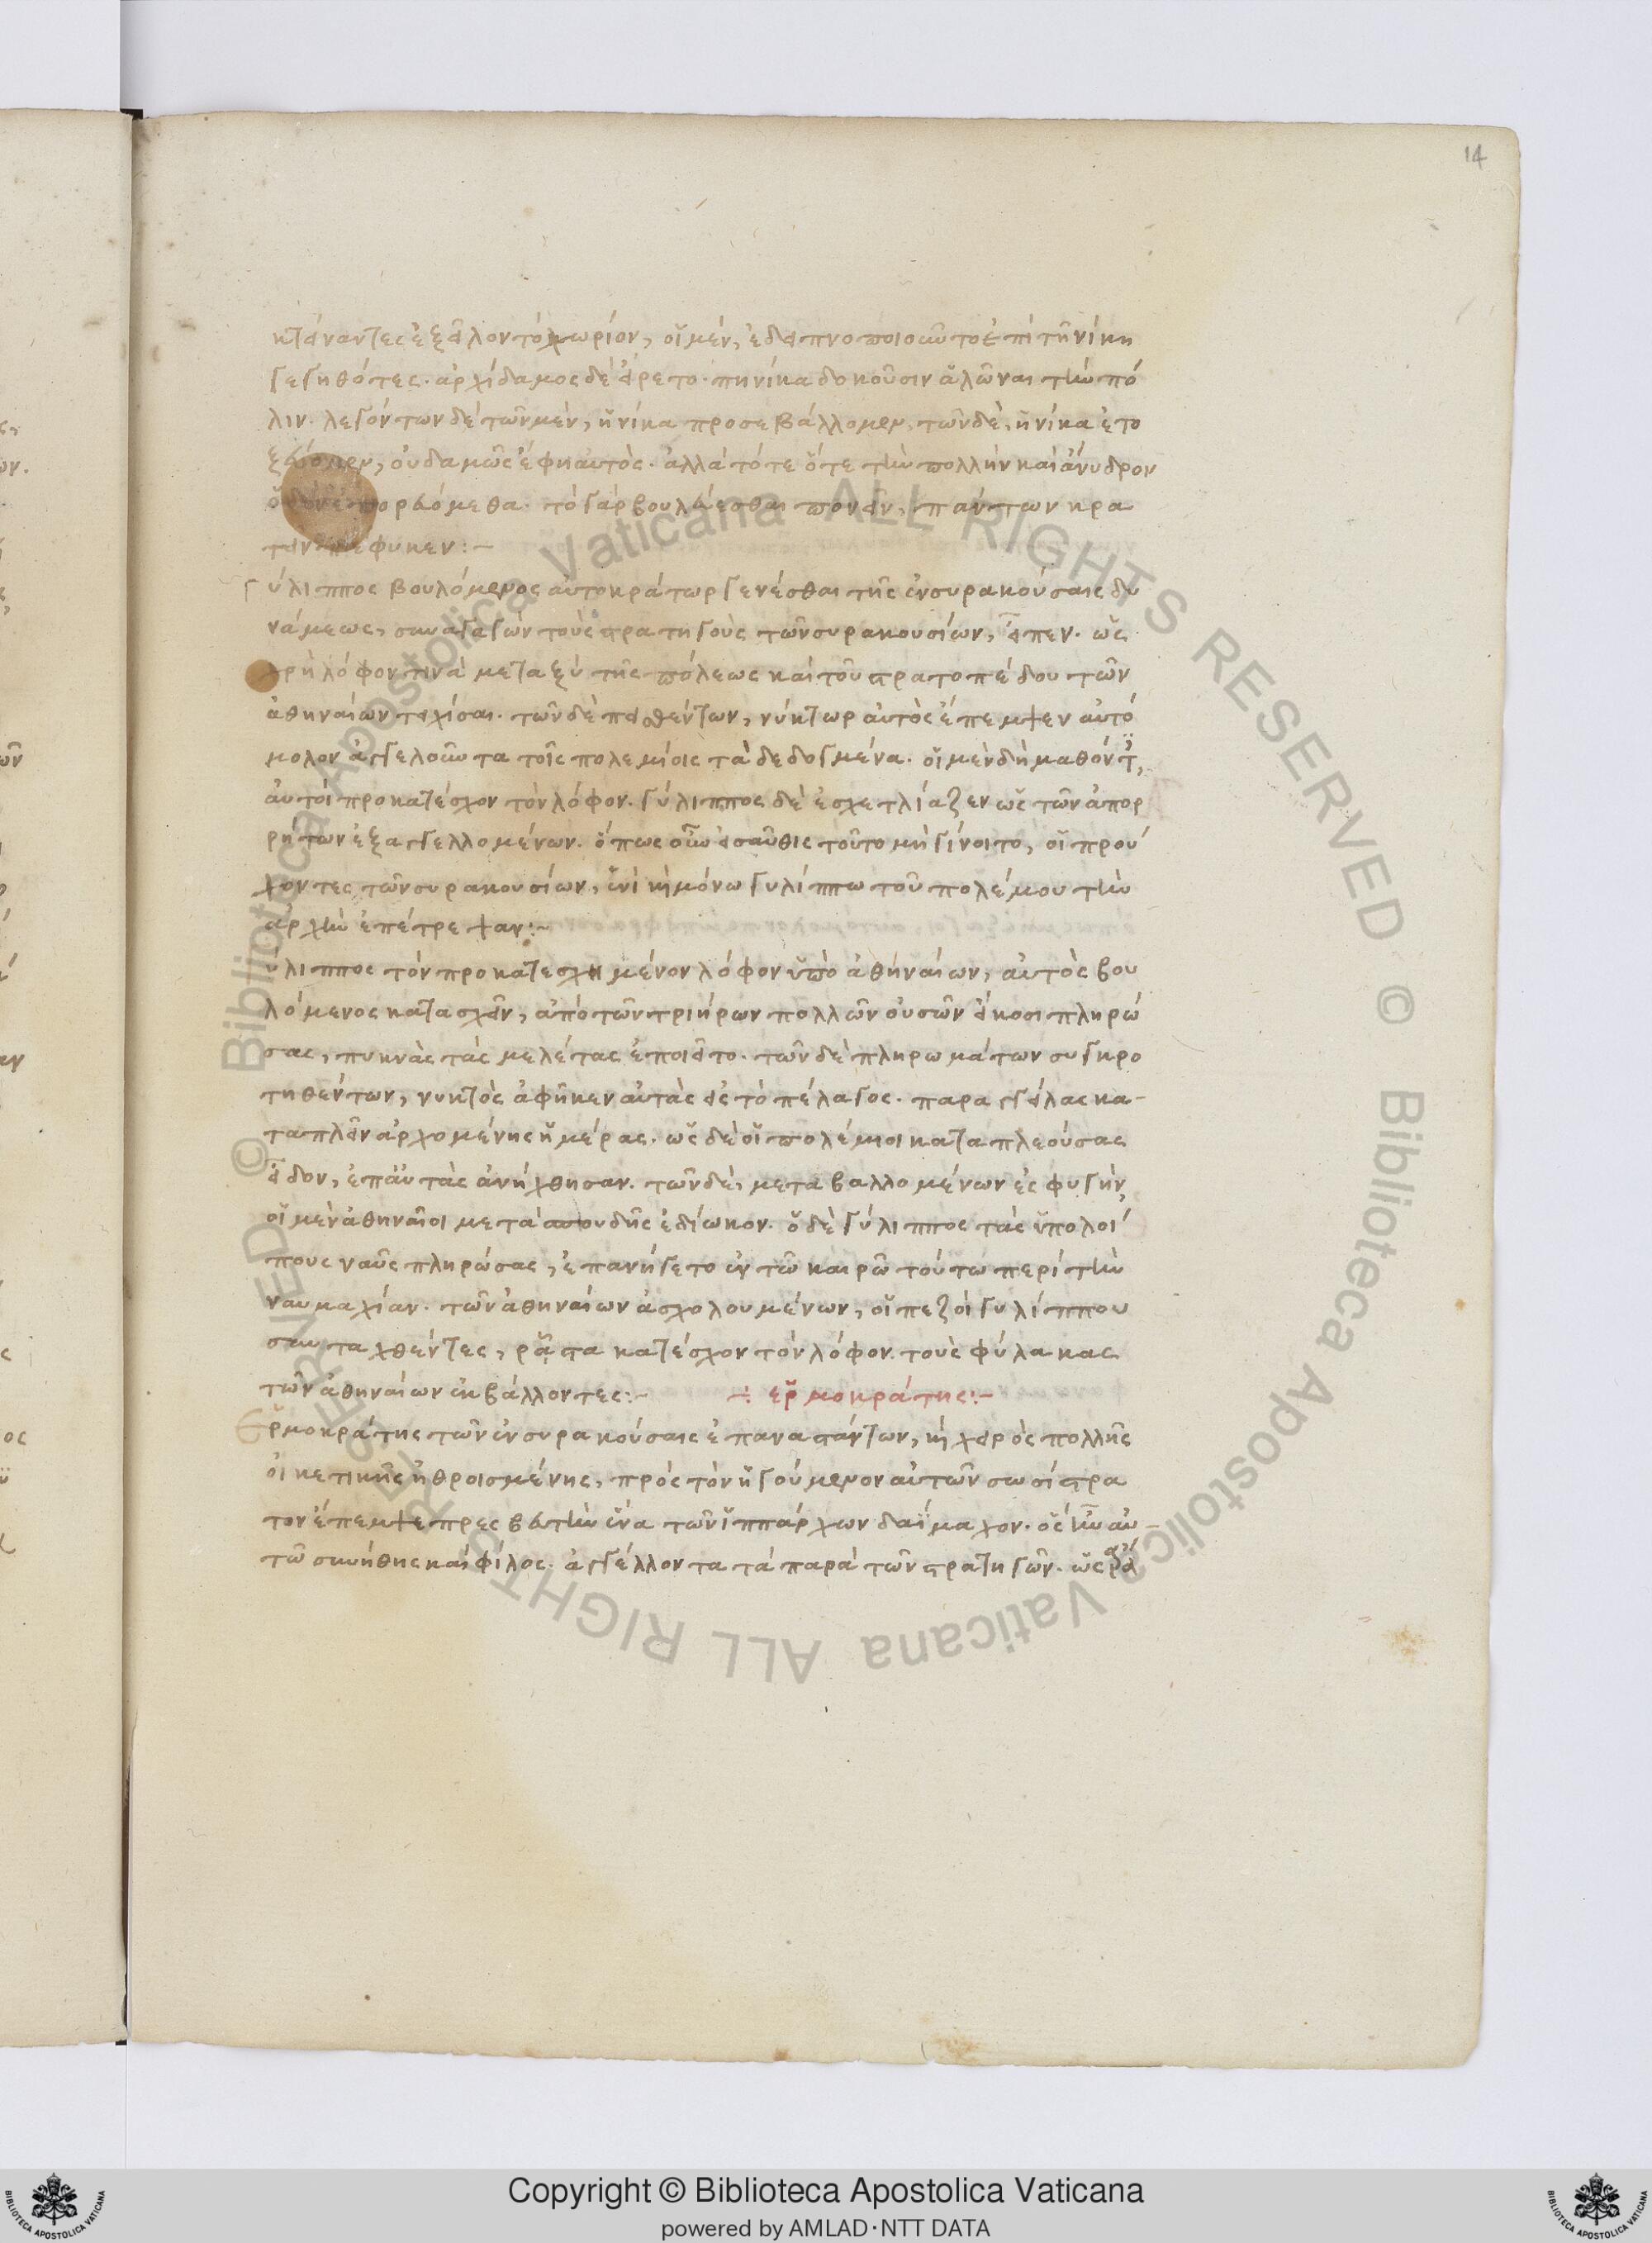 14
κτείναντες ἐξεῖλον τὸ χωρίον, οἱ μέν, ἐδειπνοποιοῦντο ἐπὶ τῆ νίκη
γεγηθότες. ἀρχίδαμος δὲ ἤρετο. πηνίκα δοκοῦσιν ἁλῶναι τὴν πό
λιν. λεγόντων δὲ τῶν μέν, ἡνίκα προσεβάλλομεν, τῶν δὲ, ἡνίκα ἐτο
ξεύομεν, οὐδαμῶς ἔφη αὐτὸς. ἀλλὰ τότε ὅτε τὴν πολλὴν καὶ ἄνυδρον
ὁδὸν ἐπορευόμεθα. τὸ γὰρ βουλεύεσθαι πονεῖν, πάντων κρα
τεῖν πέφυκεν:-
Γύλιππος βουλόμενος αὐτοκράτωρ γενέσθαι τῆς ἐν συρακούσαις δυ
νάμεως, συναγαγὼν τοὺς στρατηγοὺς τῶν συρακουσίων, εἶπεν. ὡς
χρὴ λόφον τινὰ μεταξὺ τῆς πόλεως καὶ τοῦ στρατοπέδου τῶν
ἀθηναίων τειχίσαι. τῶν δὲ πεισθέντων, νύκτωρ αὐτὸς ἔπεμψεν αὐτό
μολον ἀγγελοῦντα τοῖς πολεμίοις τὰ δεδογμένα. οἱ μὲν δὴ μαθόντες,
αὐτοὶ προκατέσχον τὸν λόφον. γύλιππος δὲ ἐσχετλίαζεν ὡς τῶν ἀπορ
ρήτων ἐξαγγελλομένων. ὅπως οὖν εἰσαῦθις τοῦτο μὴ γίνοιτο, οἱ πρού
χοντες τῶν συρακουσίων, ἑνὶ καὶ μόνω γυλίππω τοῦ πολέμου τὴν
ἀρχὴν ἐπέτρεψαν:-
ύλιππος τὸν προκατεσχημένον λόφον ὑπὸ ἀθηναίων, αὐτὸς βου
λόμενος κατασχεῖν, ἀπὸ τῶν τριήρων πολλῶν οὐσῶν εἴκοσι πληρώ
σας, πυκνὰς τὰς μελέτας ἐποιεῖτο. τῶν δὲ πληρωμάτων συγκρο
τηθέντων, νυκτὸς ἀφῆκεν αὐτὰς εἰς τὸ πέλαγος. παραγγείλας κα-
ταπλεῖν ἀρχομένης ἡμέρας. ὡς δὲ οἱ πολέμιοι καταπλεούσας
εἶδον, ἐπ' αὐτὰς ἀνήχθησαν. τῶν δὲ, μεταβαλλομένων ἐς φυγὴν,
οἱ μὲν ἀθηναῖοι μετὰ σπουδῆς ἐδίωκον. ὁ δὲ γύλιππος τὰς ὑπολοί
πους ναῦς πληρώσας, ἐπανήγετο ἐν τῶ καιρῶ τούτω περὶ τὴν
ναυμαχίαν. τῶν ἀθηναίων ἀσχολουμένων, οἱ πεζοὶ γυλίππου
συνταχθέντες, ρᾷστα κατέσχον τὸν λόφον. τοὺς φύλακας
τῶν ἀθηναίων ἐκβάλλοντες:- ÷ ερμοκράτης:-
Ερμοκράτης τῶν ἐν συρακούσαις ἐπαναστάντων, καὶ χειρὸς πολλῆς
οἰκετικῆς ἠθροισμένης, πρὸς τὸν ἡγούμενον αὐτῶν σωσίστρα
τον ἔπεμψε πρεσβευτὴν ἕνα τῶν ἱππάρχων δαΐμαχον. ὃς ἦν αὐ-
τῶ συνήθης καὶ φίλος. ἀγγέλλοντα τὰ παρὰ τῶν στρατηγῶν. ὡς
Copyright © Biblioteca Apostolica Vaticana
powered by AMLAD·NTT DATA
© Biblioteca Apostolica Vaticana ALL RIGHTS RESERVED © Biblioteca Apostolica Vaticana ALL RIGHTS RESERVED